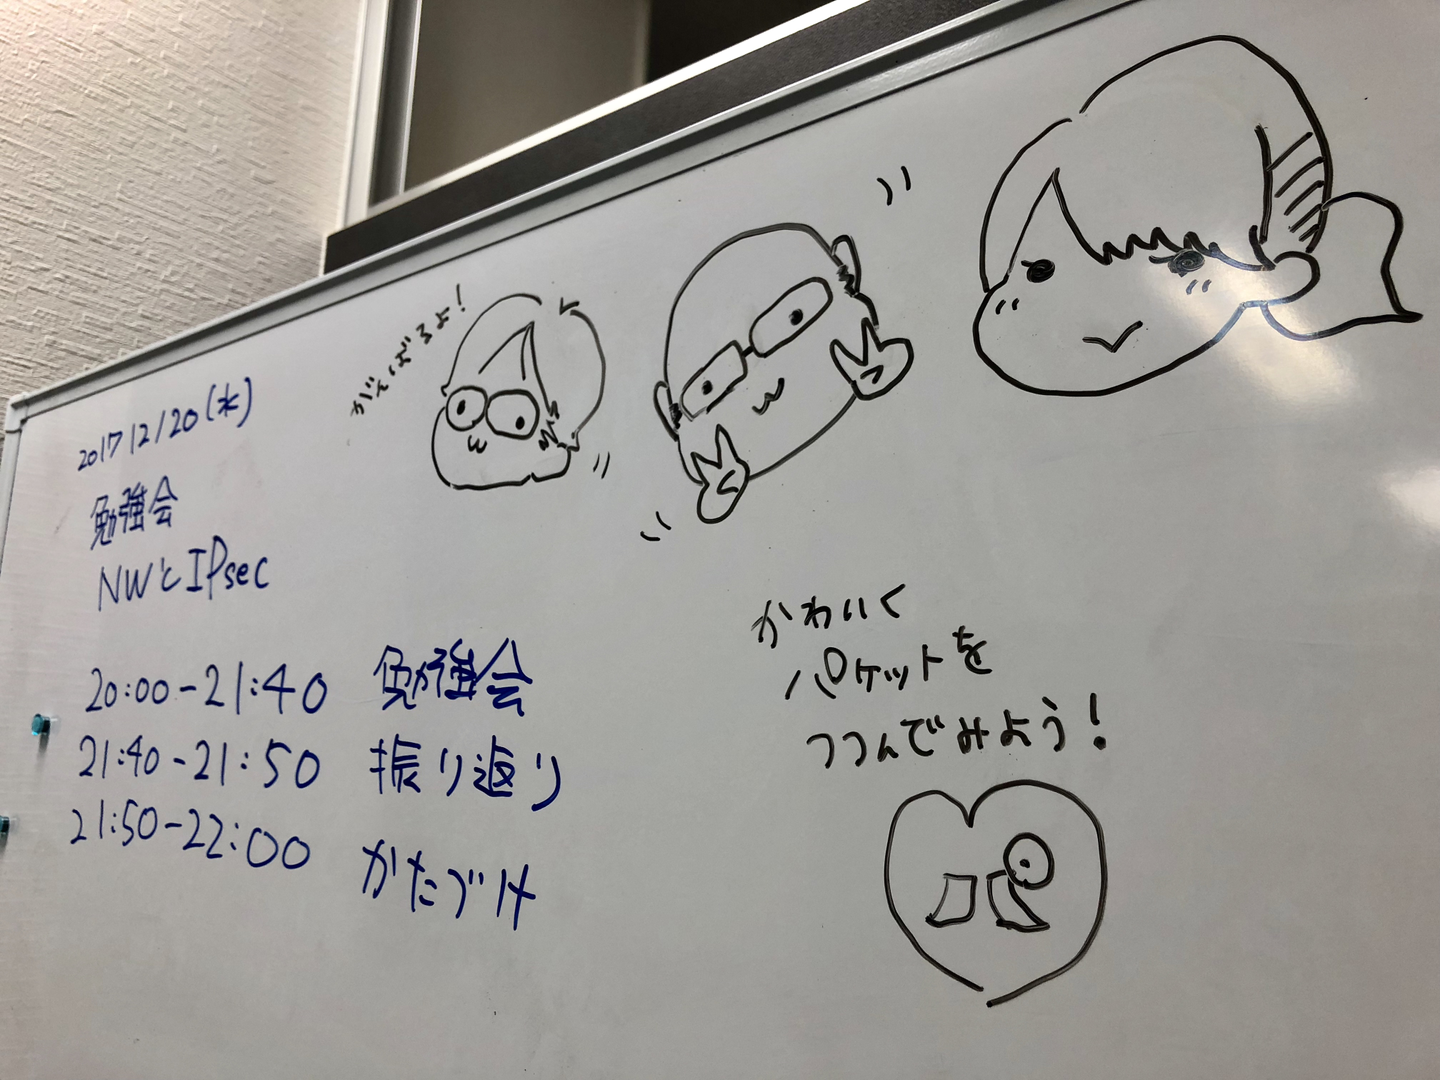 2017 12/20(水)
勉強会
NWとIPsec
20:00-21:40 勉強会
21:40-21:50 振り返り
21:50-22:00 かたづけ
がんばるよ!
かわいく
パケットを
つつんでみよう!
パ